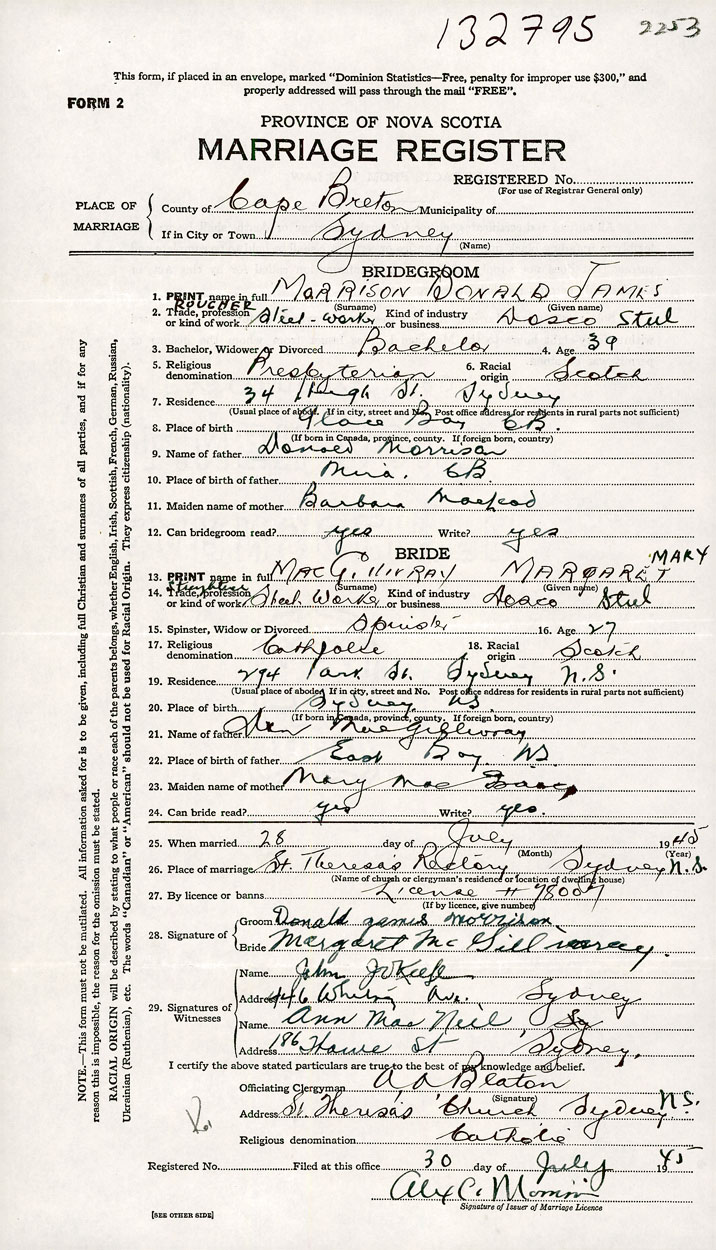 132795 2253
This form, if placed in an envelope, marked "Dominion Statistics—Free, penalty for improper use $300," and
properly addressed will pass through the mail "FREE".
FORM 2
PROVINCE OF NOVA SCOTIA
MARRIAGE REGISTER
REGISTERED No.
(For use of Registrar General only)
PLACE OF MARRIAGE
County of Cape Breton Municipality of
If in City or Town Sydney
(Name)
BRIDEGROOM
1. PRINT name in full MORRISON DONALD JAMES
(Surname) (Given name)
ROUCHER
2. Trade, profession or kind of work Steel-Worker Kind of industry or business Dosco Steel
3. Bachelor, Widower or Divorced Bachelor 4. Age 39
5. Religious denomination Presbyterian 6. Racial origin Scotch
7. Residence 34 Hugh St. Sydney
(Usual place of abode. If in city, street and No. Post office address for residents in rural parts not sufficient)
8. Place of birth Glace Bay CB.
(If born in Canada, province, county. If foreign born, country)
9. Name of father Donald Morrison
10. Place of birth of father Mira. CB
11. Maiden name of mother Barbara MacLeod
12. Can bridegroom read? yes Write? yes
BRIDE
13. PRINT name in full MACGILLIVRAY MARGARET MARY
(Surname) (Given name)
14. Trade, profession or kind of work Steel Worker Kind of industry or business Dosco Steel
15. Spinster, Widow or Divorced Spinster 16. Age 27
17. Religious denomination Catholic 18. Racial origin Scotch
19. Residence 294 Park St. Sydney N.S.
(Usual place of abode. If in city, street and No. Post office address for residents in rural parts not sufficient)
20. Place of birth Sydney NS.
(If born in Canada, province, county. If foreign born, country)
21. Name of father Dan MacGillivray
22. Place of birth of father East Bay NS
23. Maiden name of mother Mary Mac Isaac
24. Can bride read? yes Write? yes.
25. When married 28 day of July 1945
(Month) (Year)
26. Place of marriage St. Theresa's Rectory Sydney N.S.
(Name of church or clergyman's residence or location of dwelling house)
27. By licence or banns License #
(If by licence, give number)
28. Signature of
Groom Donald James Morrison
Bride Margaret McGillivray.
29. Signatures of Witnesses
Name John J O'Keefe
Address 446 Whitney Ave. Sydney
Name Ann MacNeil
Address 186 Howe St Sydney.
I certify the above stated particulars are true to the best of my knowledge and belief.
Officiating Clergyman
(Signature)
Address St. Theresa's Church Sydney N.S.
Religious denomination Catholic
Registered No. Filed at this office 30 day of July 1945
Signature of Issuer of Marriage Licence
[SEE OTHER SIDE]
NOTE.—This form must not be mutilated. All information asked for is to be given, including full Christian and surnames of all parties, and if for any
reason this is impossible, the reason for the omission must be stated.
RACIAL ORIGIN will be described by stating to what people or race each of the parents belongs, whether English, Irish, Scottish, French, German, Russian,
Ukrainian (Ruthenian), etc. The words "Canadian" or "American" should not be used for Racial Origin. They express citizenship (nationality).